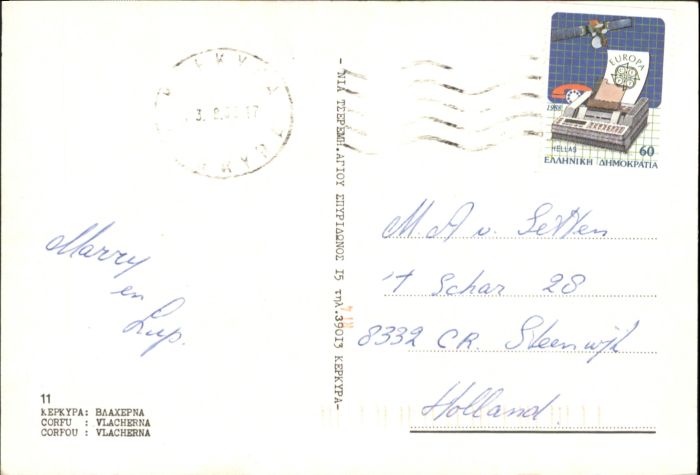 ΚΕΡΚΥΡΑ
3. 8. 17
ΚΕΡΚΥΡΑ
EUROPA
1988
HELLAS 60
ΕΛΛΗΝΙΚΗ ΔΗΜΟΚΡΑΤΙΑ
- ΝΙΑ ΤΣΕΡΕΜΗ.ΑΓΙΟΥ ΣΠΥΡΙΔΩΝΟΣ 15 τηλ.39013 ΚΕΡΚΥΡΑ-
Marry
en
Lup.
M A v. Setten
't Schar 28
8332 CR. Steenwijk
Holland.
11
ΚΕΡΚΥΡΑ: ΒΛΑΧΕΡΝΑ
CORFU : VLACHERNA
CORFOU : VLACHERNA